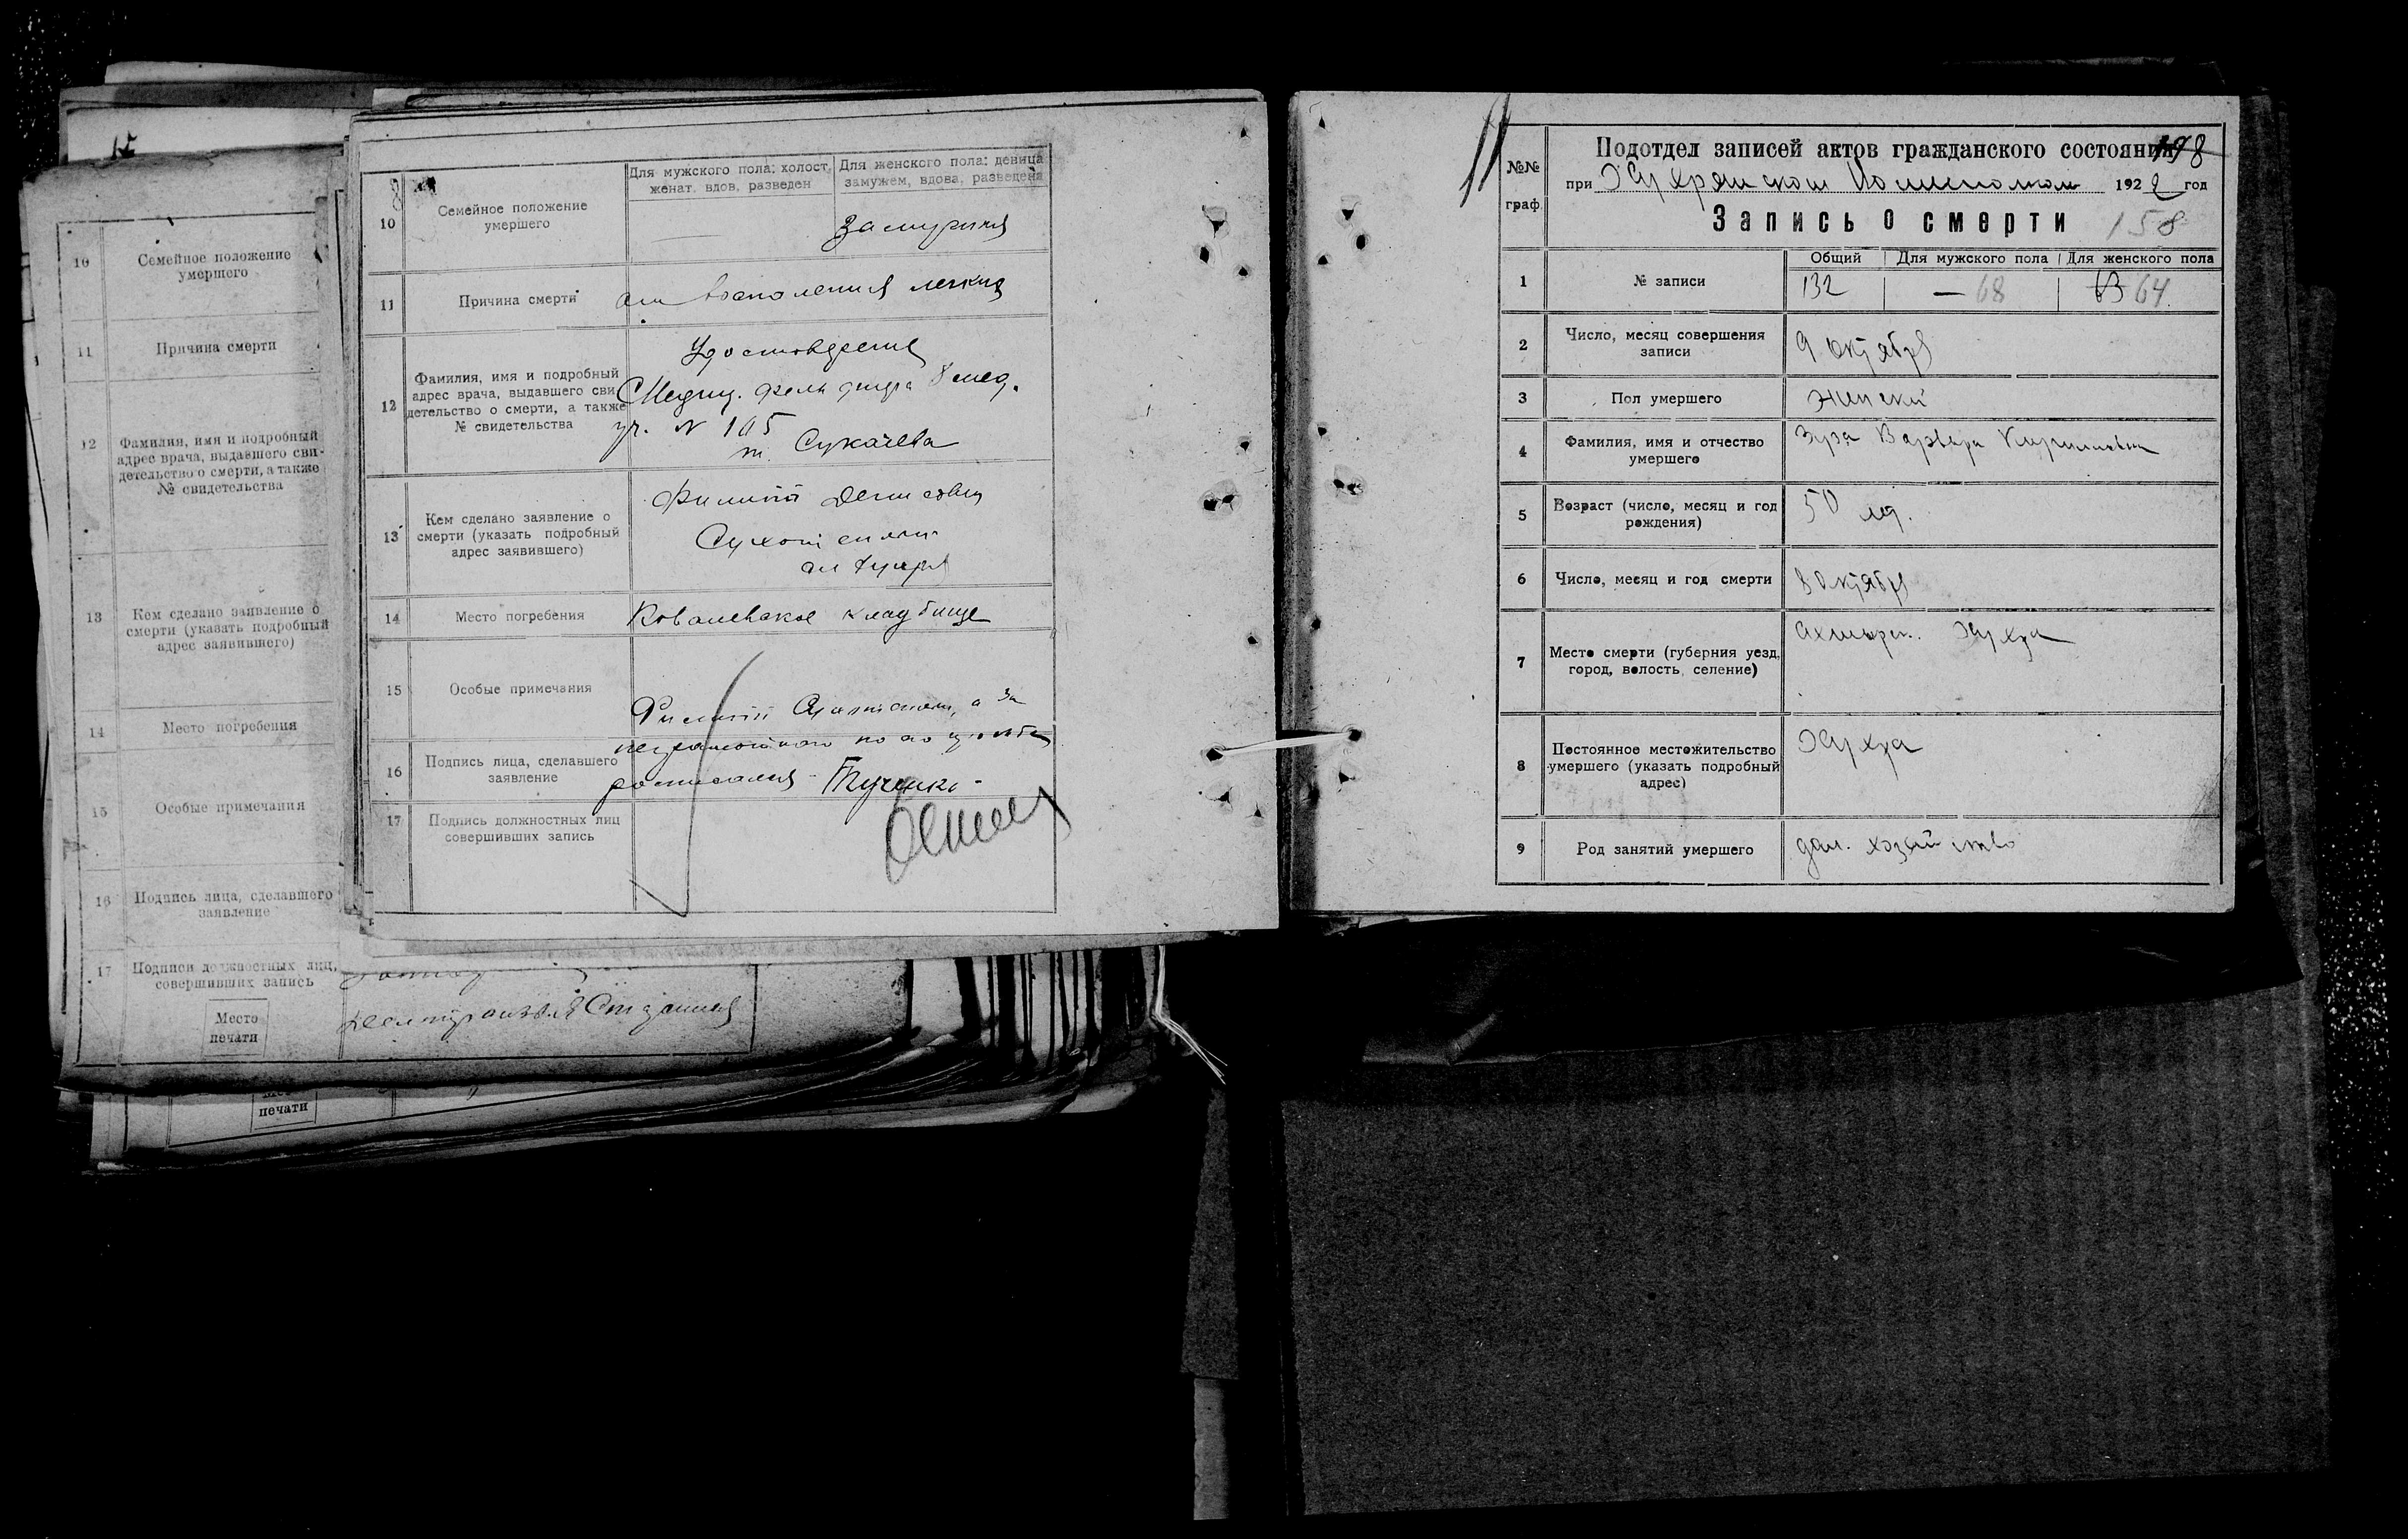 15
10
Семейное положение
умершего
11
Причина смерти
12
Фамилия, имя и подробный
адрес врача, выдавшего сви-
детельство о смерти, а также
№ свидетельства
13
Кем сделано заявление о
смерти (указать подробный
адрес заявившего)
14
Место погребения
15
Особые примечания
16
Подпись лица, сделавшего
заявление
17
Подписи должностных лиц,
совершивших запись
Место
печати
печати
10
Семейное положение
умершего
Для мужского пола: холост,
женат, вдов, разведен
Для женского пола: девица
замужем, вдова, разведена
замужняя
11
Причина смерти
от воспаления легких
12
Фамилия, имя и подробный
адрес врача, выдавшего сви-
детельство о смерти, а также
№ свидетельства
Удостоверение
Медиц. фельдшера 8 мед.
уч. № 105
т. Сукачева
13
Кем сделано заявление о
смерти (указать подробный
адрес заявившего)
Филипп Денисович
14
Место погребения
Ковалевское кладбище
15
Особые примечания
Филипп а за
неграмотного по его просьбе
16
Подпись лица, сделавшего
заявление
расписался -
17
Подпись должностных лиц
совершивших запись
№№
граф.
Подотдел записей актов гражданского состояния
198
при 1922 год
Запись о смерти
158
1
№ записи
Общий
Для мужского пола
Для женского пола
132
— 68
63 64
2
Число, месяц совершения
записи
9 октября
3
Пол умершего
женский
4
Фамилия, имя и отчество
умершего
Варвара Кирилловна
5
Возраст (число, месяц и год
рождения)
50 лет.
6
Число, месяц и год смерти
8 октября
7
Место смерти (губерния уезд,
город, волость, селение)
Ахтырск.
8
Постоянное местожительство
умершего (указать подробный
адрес)
9
Род занятий умершего
дом. хозяйство